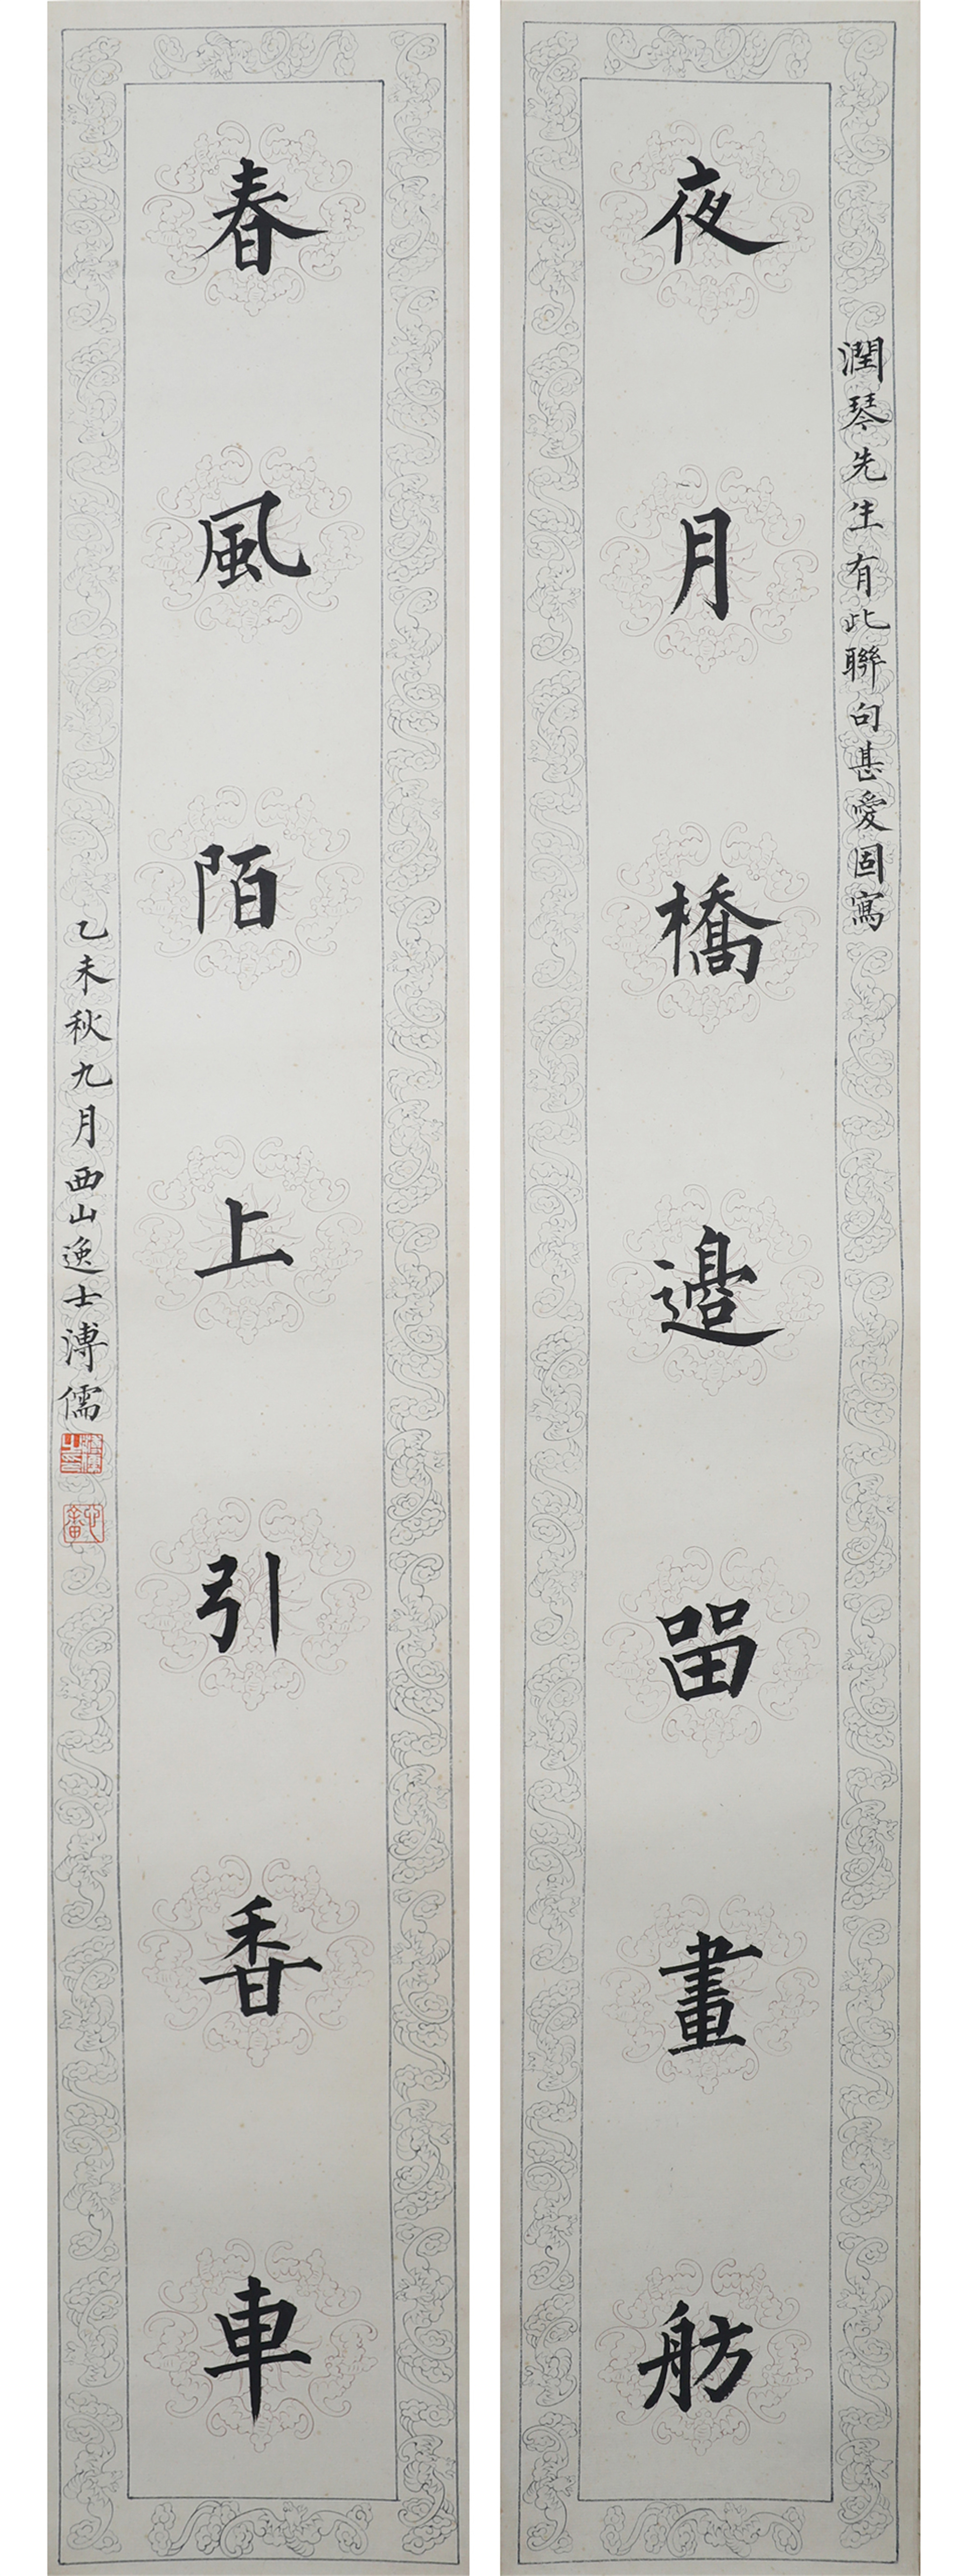 夜月橋邊畱畫舫
潤琴先生有此聯句甚愛固寫
春風陌上引香車
乙未秋九月西山逸士溥儒